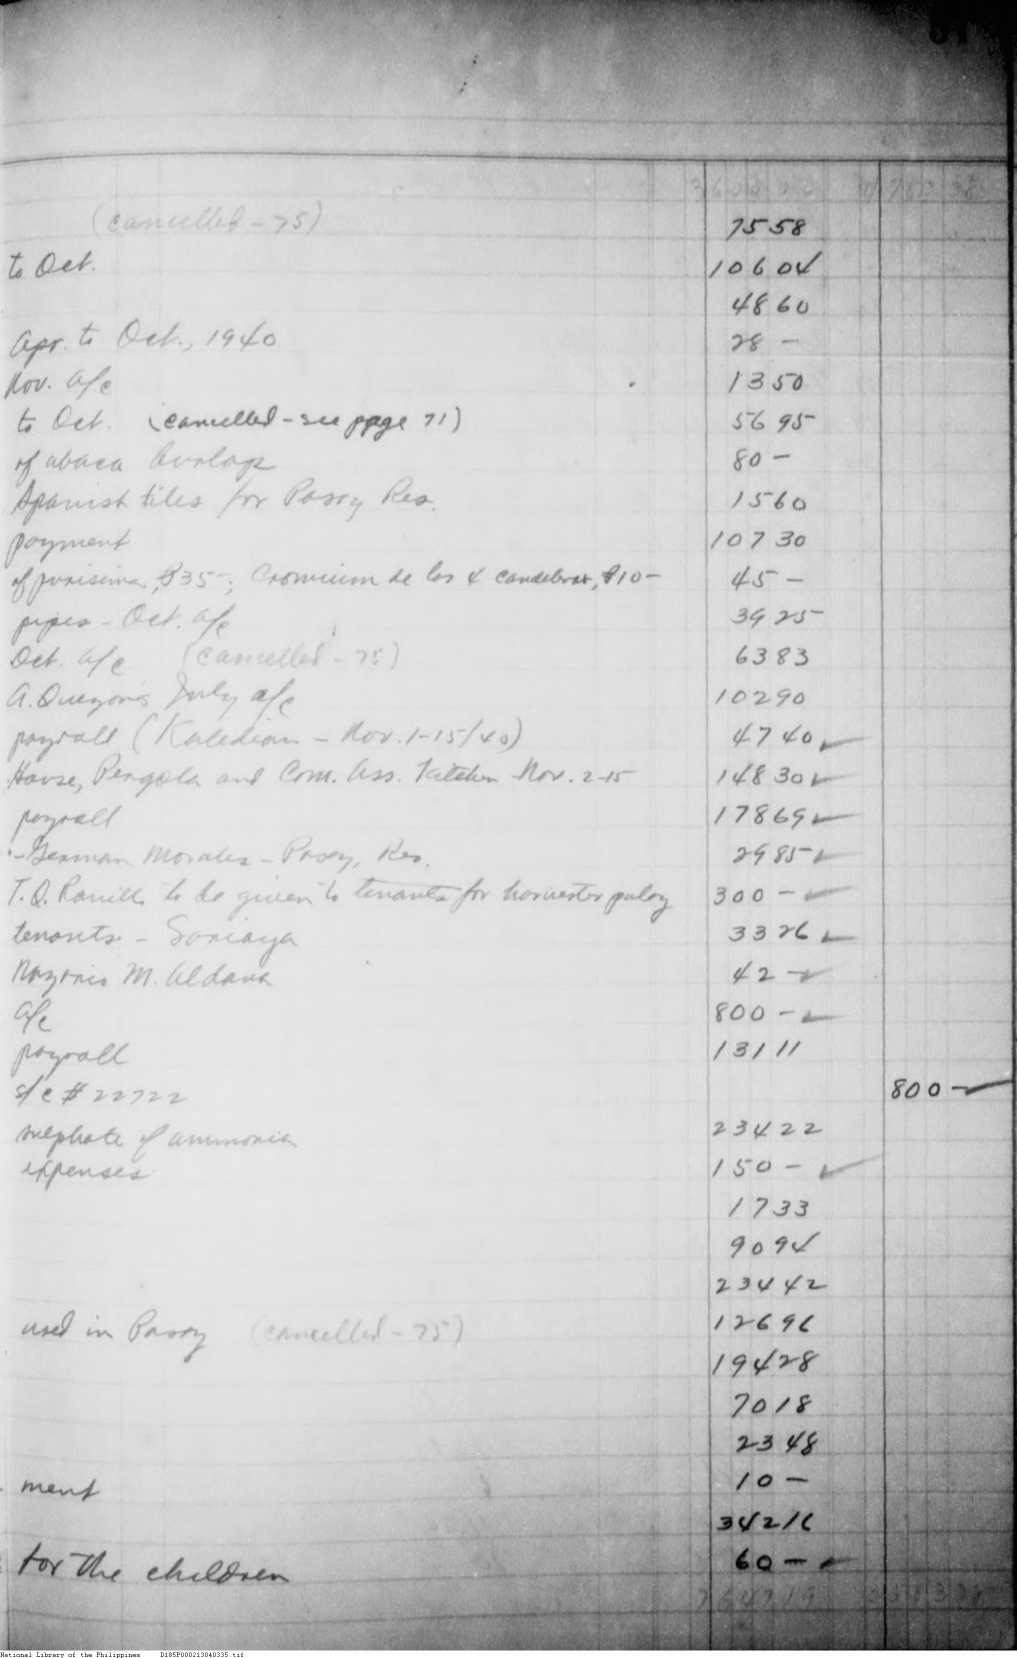 (cancelled - 75) 75 58
to Oct. 106 04
48 60
Apr. to Oct., 1940 28 -
Nov. a/c 13 50
to Oct. (cancelled - see page 71) 56 95
of abaca burlap 80 -
Spanish tiles for Pasay Res. 15 60
payment 107 30
of purisima, ₱35-; Cromium de los 4 candelbras, ₱10- 45 -
pipes - Oct. a/c 39 25
Oct. a/c (cancelled - 75) 63 83
A. Quezon's July a/c 102 90
payroll (Kaledian - Nov. 1-15/40) 47 40 ✓
House, Pergola and Com. Ass. Kitchen Nov. 2-15 148 30 ✓
payroll 178 69 ✓
- German Morales - Pasay, Res. 29 85 ✓
T.Q. to be given to tenants for harvester palay 300 - ✓
tenants - Sariaya 33 26 ✓
M. Aldana 42 - ✓
a/c 800 - ✓
payroll 131 11
s/c # 22722 800 - ✓
sulphate of ammonia 234 22
expenses 150 - ✓
17 33
90 94
234 42
used in Pasay (cancelled - 75) 126 96
194 28
70 18
23 48
ment 10 -
342 16
for the children 60 - ✓
National Library of the Philippines D185P000213040335.tif